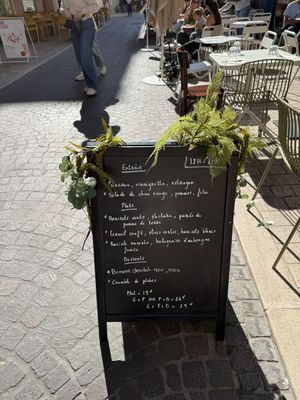 Entrées
12H / 14H
* Poireaux, vinaigrette, estragon
* Salade de chou rouge, pommes, feta
Plats
* Haricots verts, shiitake, purée de
pomme de terre
* Fenouil confit, olives vertes, haricots blancs
* Haricots, bolognaise d'aubergine
fumée
Desserts
* Brownie chocolat noir, noix
* Crumble de pêches
Plat = 19€
E+P OU P+D = 24€
E+P+D = 29€